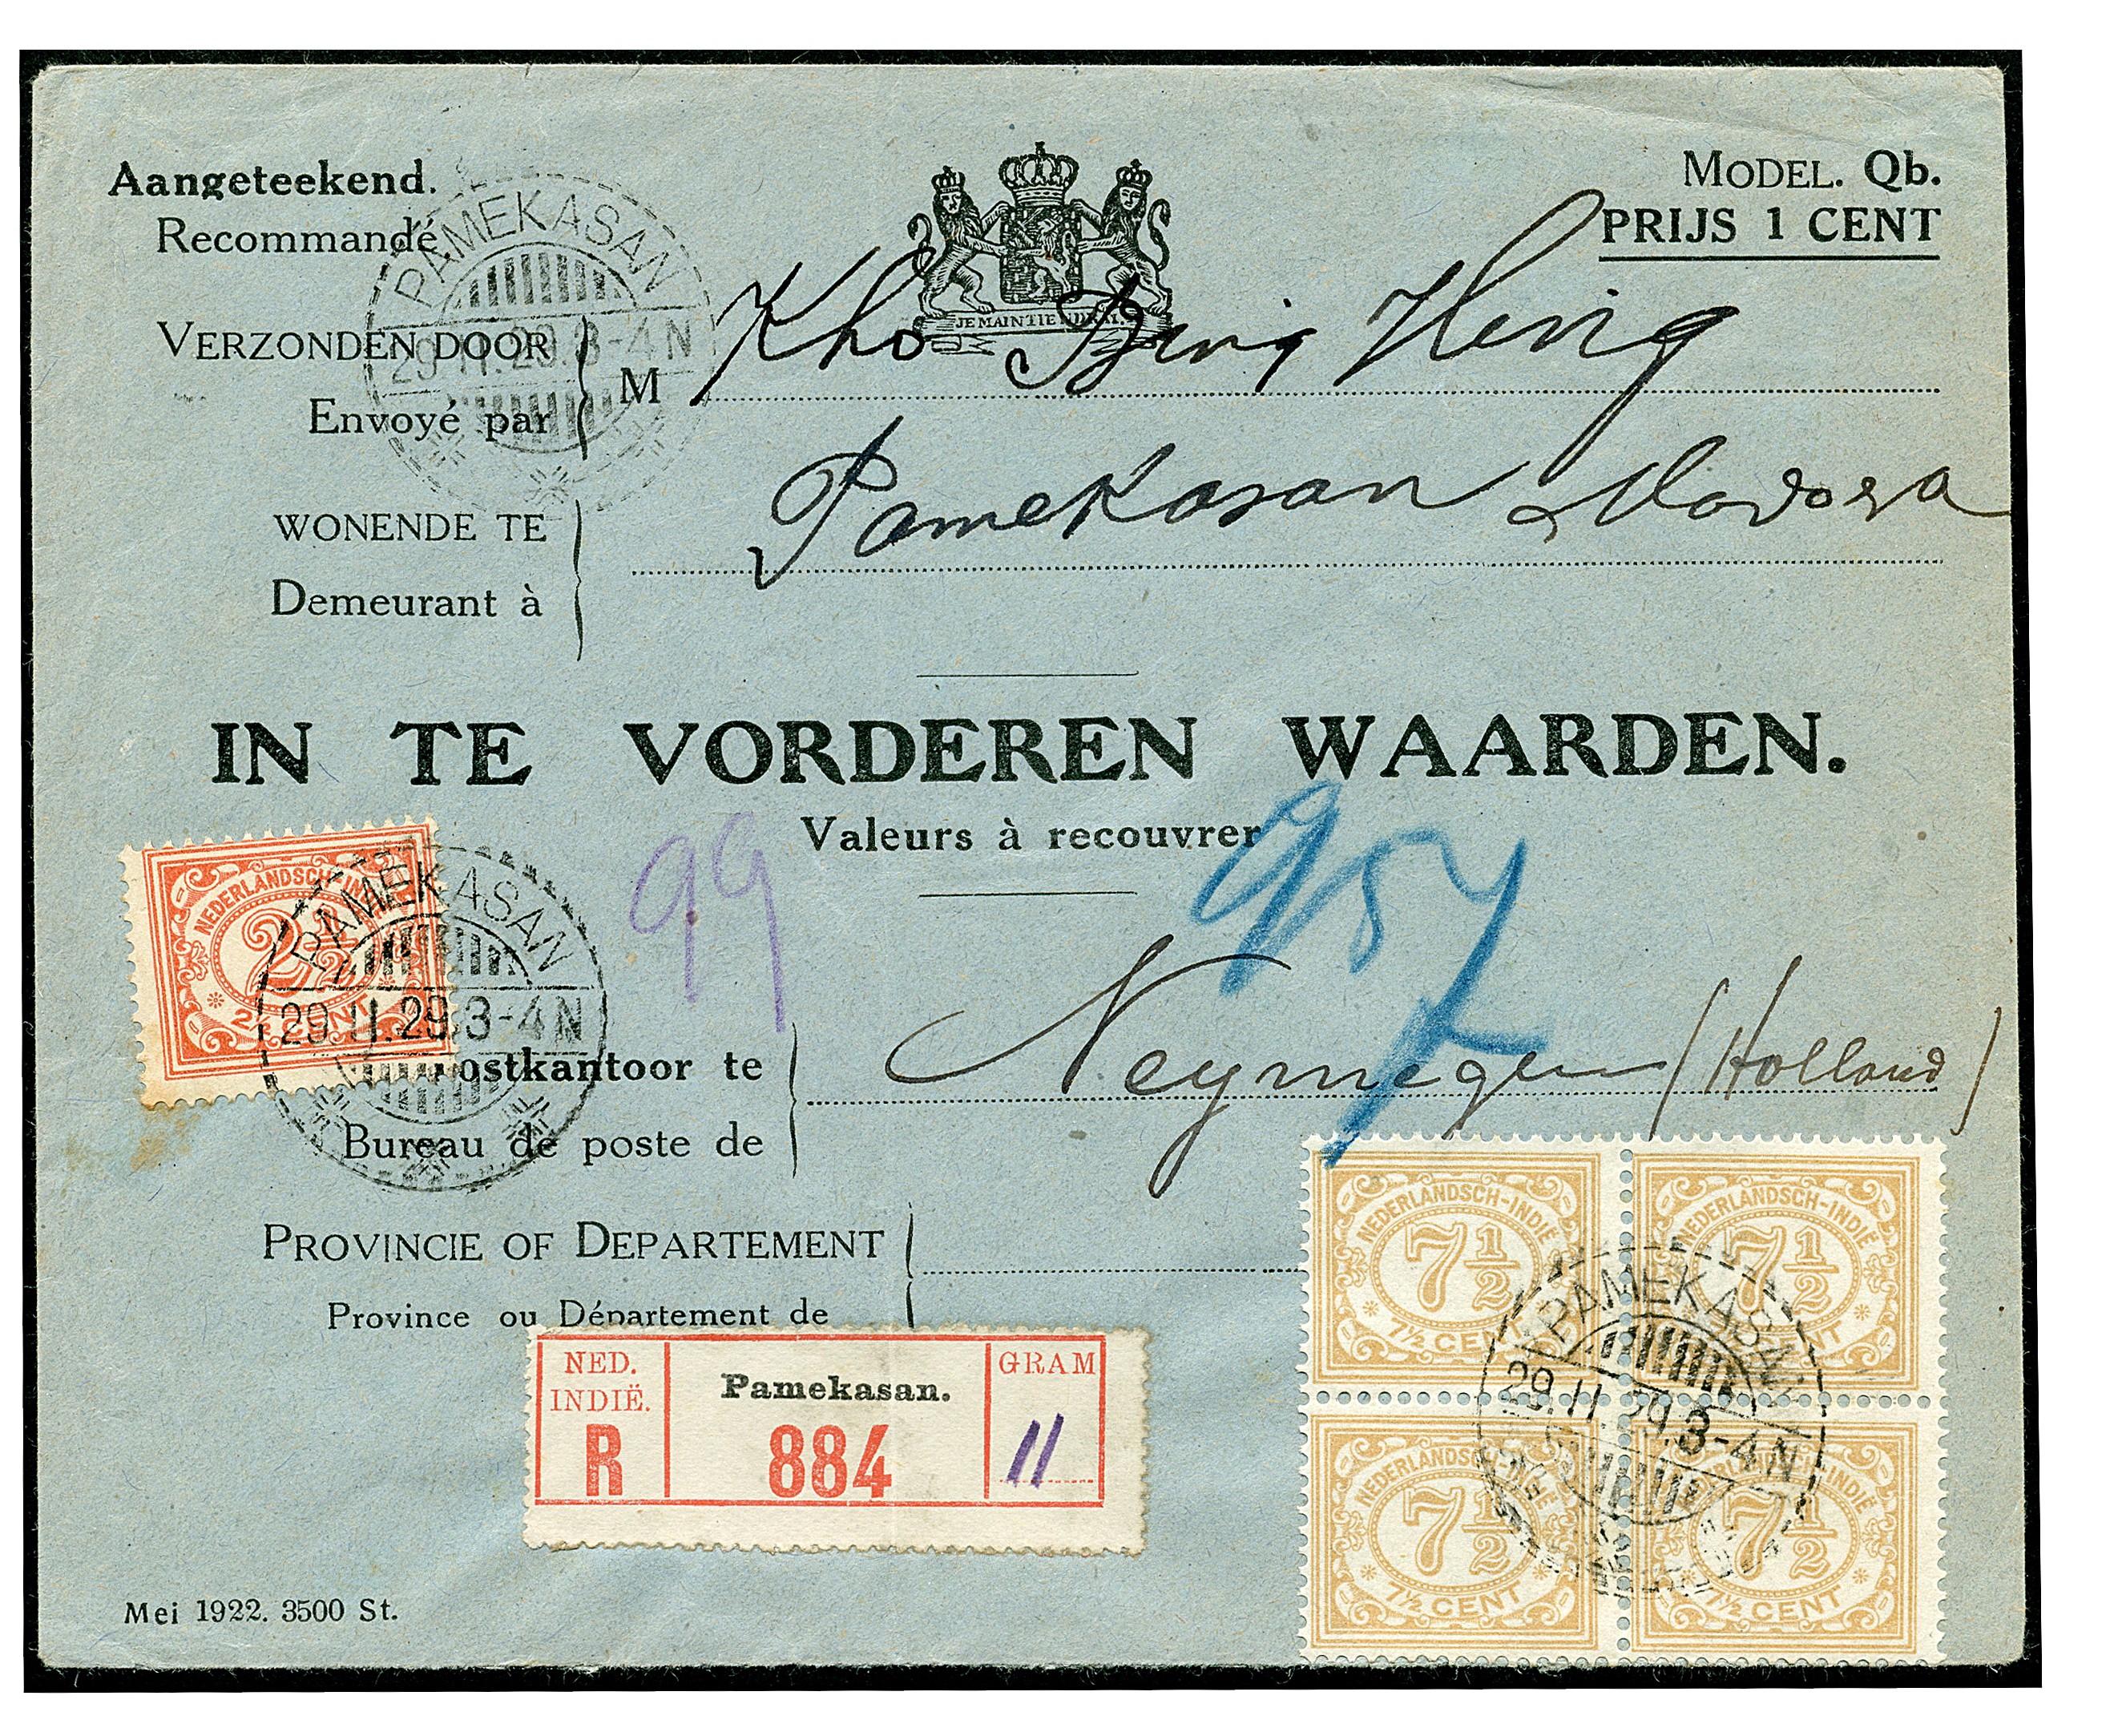 Aangeteekend.
Recommandé
MODEL. Qb.
PRIJS 1 CENT
JE MAINTIENDRAI.
PAMEKASAN
29.11.29.3-4N
VERZONDEN DOOR
Envoyé par
M Kho Bing Hing
WONENDE TE
Demeurant à
Pamekasan Madoera
IN TE VORDEREN WAARDEN.
Valeurs à recouvrer
99
957
NEDERLANDSCH-INDIË
2½
2½ CENT
PAMEKASAN
29.11.29.3-4N
Postkantoor te
Bureau de poste de
Neymegen (Holland)
PROVINCIE OF DEPARTEMENT
Province ou Département de
NEDERLANDSCH-INDIË
7½
7½ CENT
NEDERLANDSCH-INDIË
7½
7½ CENT
NEDERLANDSCH-INDIË
7½
7½ CENT
NEDERLANDSCH-INDIË
7½
7½ CENT
PAMEKASAN
29.11.29.3-4N
NED.
INDIË.
R
Pamekasan.
884
GRAM
11
Mei 1922. 3500 St.